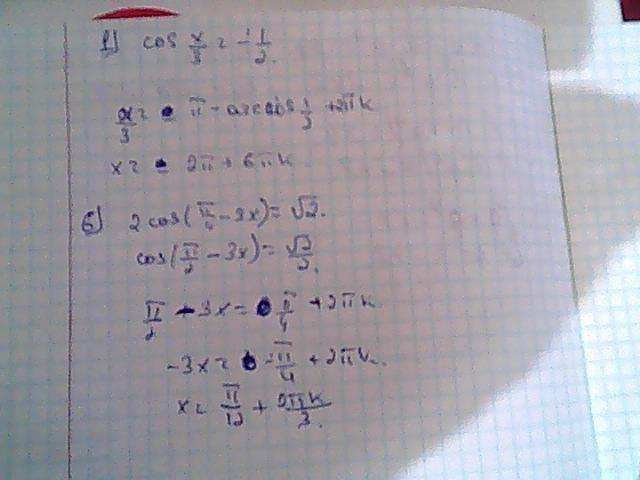 1) cos x/3 = -1/2.
x/3 = π - arccos 1/3 + 2πk
x = 2π + 6πk
б) 2 cos(π/2 - 3x) = √2.
cos(π/2 - 3x) = √2/2.
π/2 - 3x = π/4 + 2πk
-3x = -π/4 + 2πk.
x = π/12 + 2πk/3.